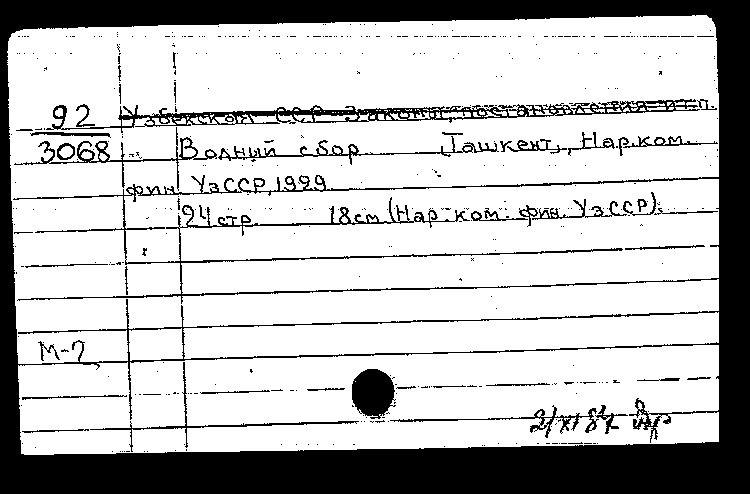 92 Узбекская ССР Законы, постановления и т.п.
3068 Волный сбор Ташкент, Нар.ком.
фин УзССР, 1929
24 стр. 18 см (Нар. ком. фин. УзССР).
М-7